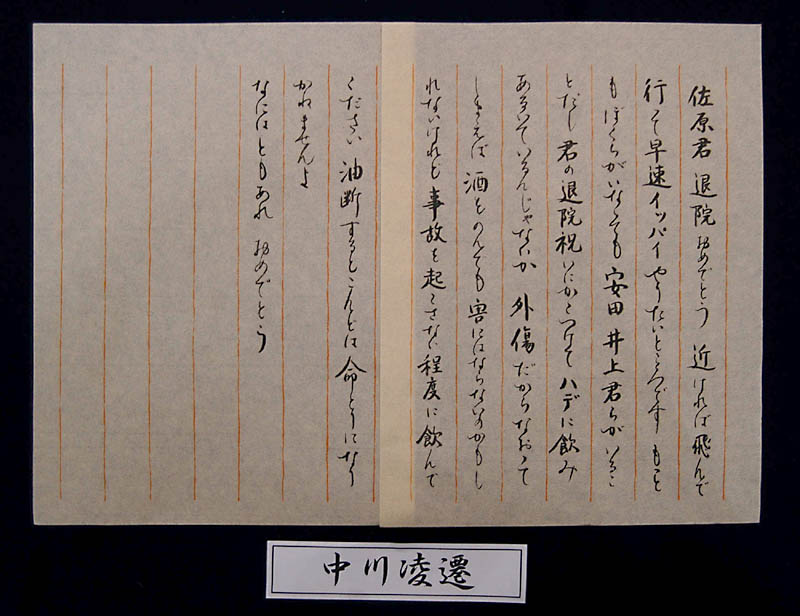 佐原君 退院おめでとう 近ければ飛んで
行って早速イッパイやりたいところです もっと
もぼくらがいなくても 安田 井上君らがいるこ
とだし 君の退院祝いにかこつけて ハデに飲み
あるいているんじゃないか 外傷だからなおって
しまえば 酒をのんでも害にはならないのかもし
れないけれど 事故を起こさない程度に飲んで
ください 油断するとこんどは命とりになり
かねませんよ
なにはともあれ おめでとう
中川凌遷